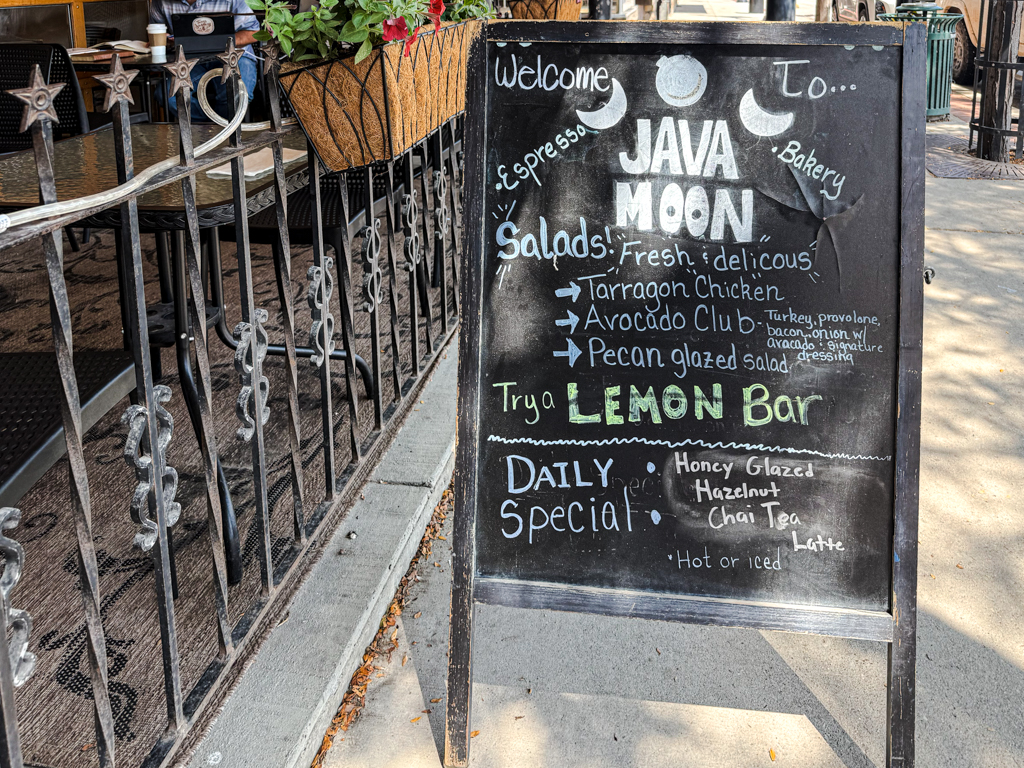 Welcome To...
• Espresso
• Bakery
JAVA
MOON
Salads! "Fresh & delicous"
→ Tarragon Chicken
→ Avocado Club - Turkey, provolone,
bacon, onion w/
avocado & signature
dressing
→ Pecan glazed salad
Try a LEMON Bar
DAILY
Special :
Honey Glazed
Hazelnut
Chai Tea
Latte
*Hot or iced